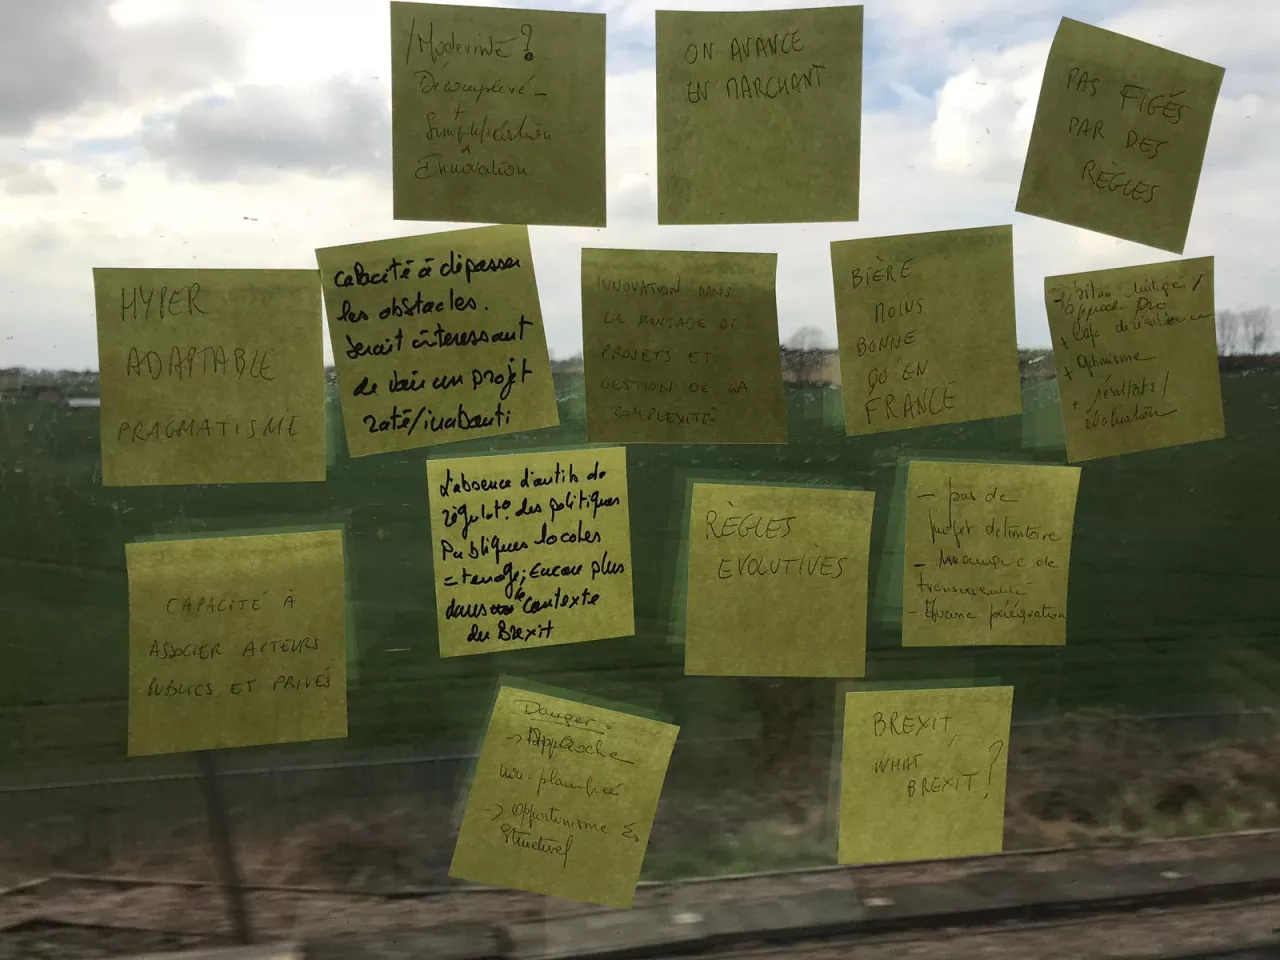 Modernité?
Décomplexé -
+
Simplification
Innovation
ON AVANCE
EN MARCHANT
PAS FIGÉS
PAR DES
RÈGLES
HYPER
ADAPTABLE
PRAGMATISME
capacité à dépasser
les obstacles.
Serait intéressant
de voir un projet
raté/inabouti
INNOVATION DANS
LE MONTAGE DE
PROJETS ET
GESTION DE LA
COMPLEXITÉ
BIÈRE
MOINS
BONNE
QU'EN
FRANCE
→ bilan mitigé /
approche pro
+ Capa de résilience
+ Optimisme
+ résultats /
évaluation
CAPACITÉ À
ASSOCIER ACTEURS
PUBLICS ET PRIVÉS
L'absence d'outils de
régulat° des politiques
Publiques locales
= danger; Encore plus
dans le contexte
du Brexit
RÈGLES
EVOLUTIVES
- pas de
projet de territoire
- manque de
transversalité
- Aucune péréquation
Danger:
→ Approche
non-planifiée
→ Opportunisme
Structurel
BREXIT,
WHAT
BREXIT?